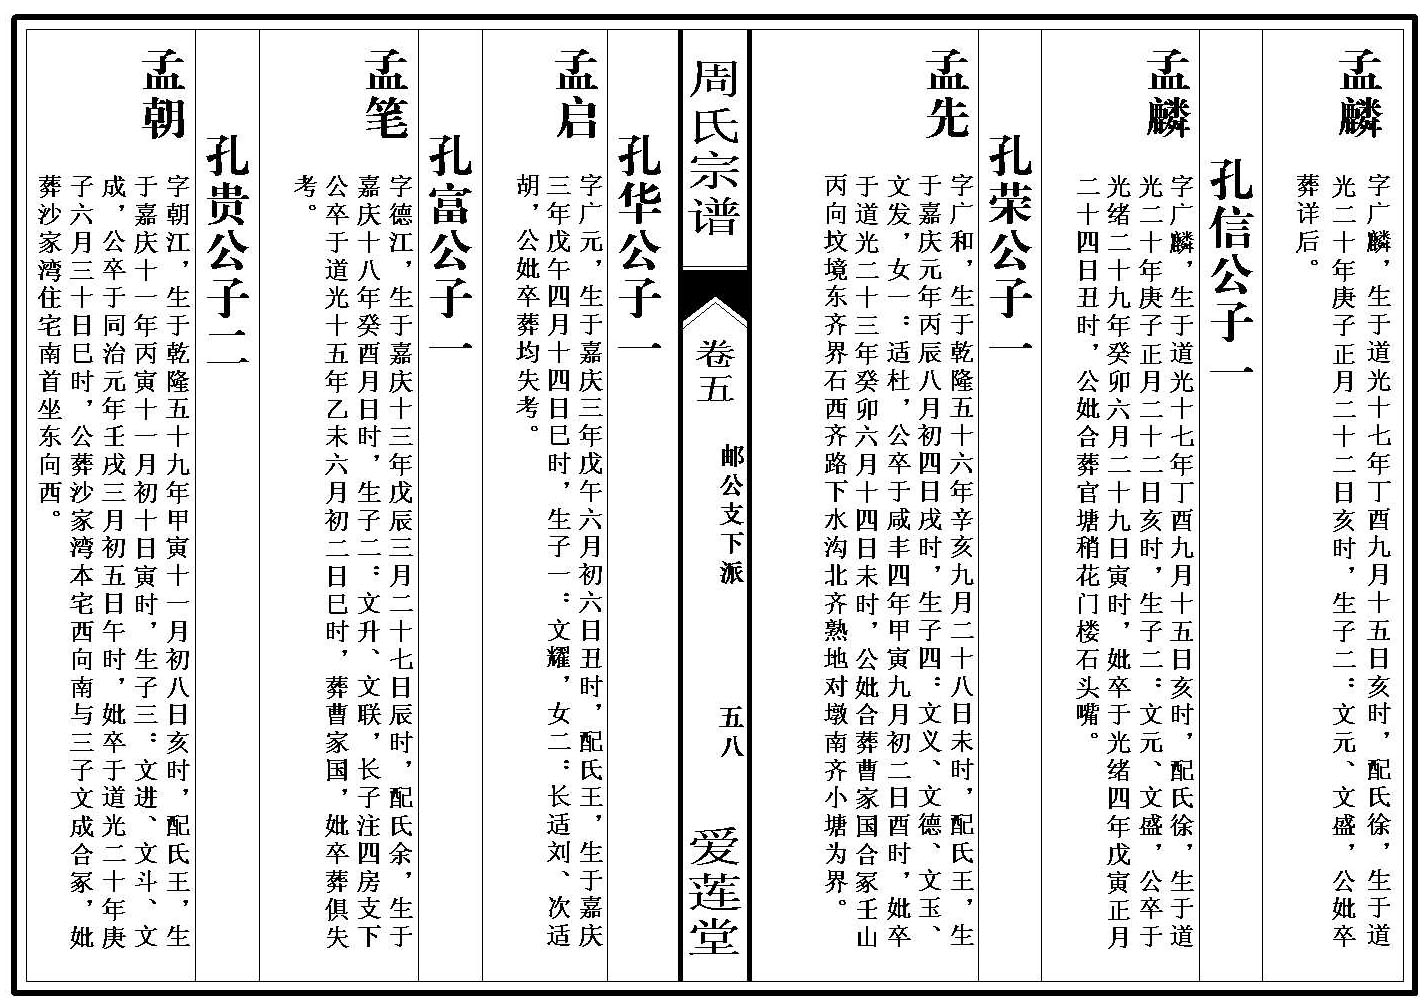 孟麟
字广麟，生于道光十七年丁酉九月十五日亥时，配氏徐，生于道
光二十年庚子正月二十二日亥时，生子二：文元、文盛，公妣卒
葬详后。
孔信公子一
孟麟
字广麟，生于道光十七年丁酉九月十五日亥时，配氏徐，生于道
光二十年庚子正月二十二日亥时，生子二：文元、文盛，公卒于
光绪二十九年癸卯六月二十九日寅时，妣卒于光绪四年戊寅正月
二十四日丑时，公妣合葬官塘稍花门楼石头嘴。
孔荣公子一
孟先
字广和，生于乾隆五十六年辛亥九月二十八日未时，配氏王，生
于嘉庆元年丙辰八月初四日戌时，生子四：文义、文德、文玉、
文发，女一：适杜，公卒于咸丰四年甲寅九月初二日酉时，妣卒
于道光二十三年癸卯六月十四日未时，公妣合葬曹家国合冢壬山
丙向坟境东齐界石西齐路下水沟北齐熟地对墩南齐小塘为界。
周氏宗谱
卷五
邮公支下派
五八
爱莲堂
孔华公子一
孟启
字广元，生于嘉庆三年戊午六月初六日丑时，配氏王，生于嘉庆
三年戊午四月十四日巳时，生子一：文耀，女二：长适刘、次适
胡，公妣卒葬均失考。
孔富公子一
孟笔
字德江，生于嘉庆十三年戊辰三月二十七日辰时，配氏余，生于
嘉庆十八年癸酉月日时，生子二：文升、文联，长子注四房支下
公卒于道光十五年乙未六月初二日巳时，葬曹家国，妣卒葬俱失
考。
孔贵公子二
孟朝
字朝江，生于乾隆五十九年甲寅十一月初八日亥时，配氏王，生
于嘉庆十一年丙寅十一月初十日寅时，生子三：文进、文斗、文
成，公卒于同治元年壬戌三月初五日午时，妣卒于道光二十年庚
子六月三十日巳时，公葬沙家湾本宅西向南与三子文成合冢，妣
葬沙家湾住宅南首坐东向西。